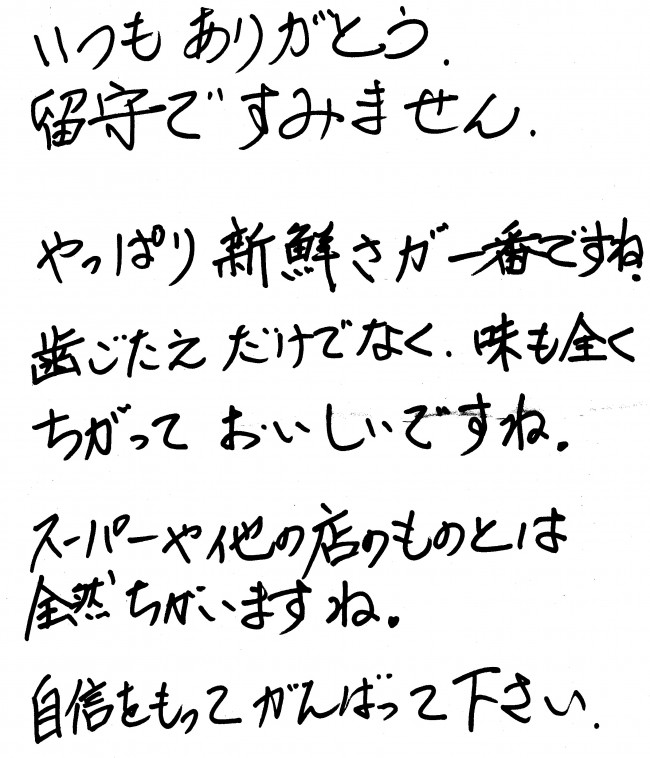 いつもありがとう.
留守ですみません.
やっぱり新鮮さが一番ですね.
歯ごたえだけでなく.味も全く
ちがっておいしいですね。
スーパーや他の店のものとは
全然ちがいますね。
自信をもってがんばって下さい.